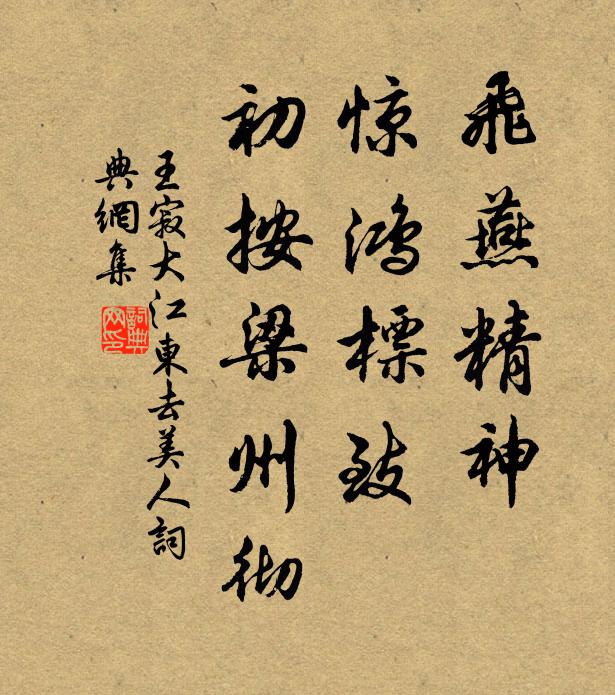 飛燕精神
惊鸿標致
初按梁州彻
王寂大江東去美人詞
典網集
詞典網印